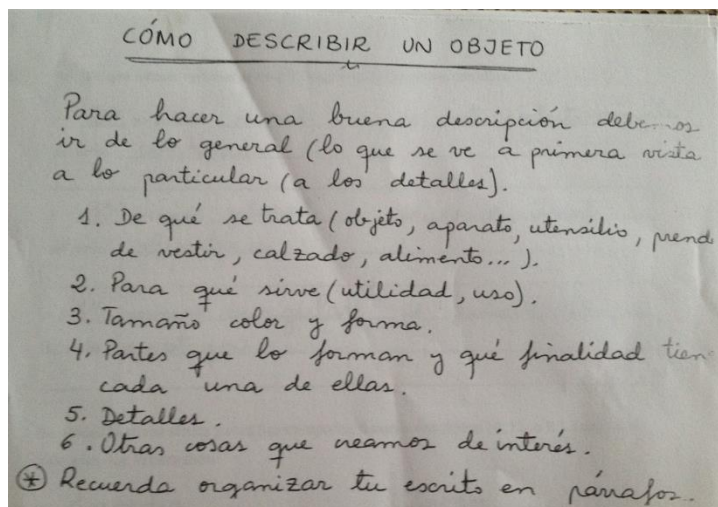 CÓMO DESCRIBIR UN OBJETO
Para hacer una buena descripción debemos
ir de lo general (lo que se ve a primera vista
a lo particular (a los detalles).
1. De qué se trata (objeto, aparato, utensilio, prend
de vestir, calzado, alimento...).
2. Para qué sirve (utilidad, uso).
3. Tamaño color y forma.
4. Partes que lo forman y qué finalidad tien
cada una de ellas.
5. Detalles.
6. Otras cosas que veamos de interés.
* Recuerda organizar tu escrito en párrafos.